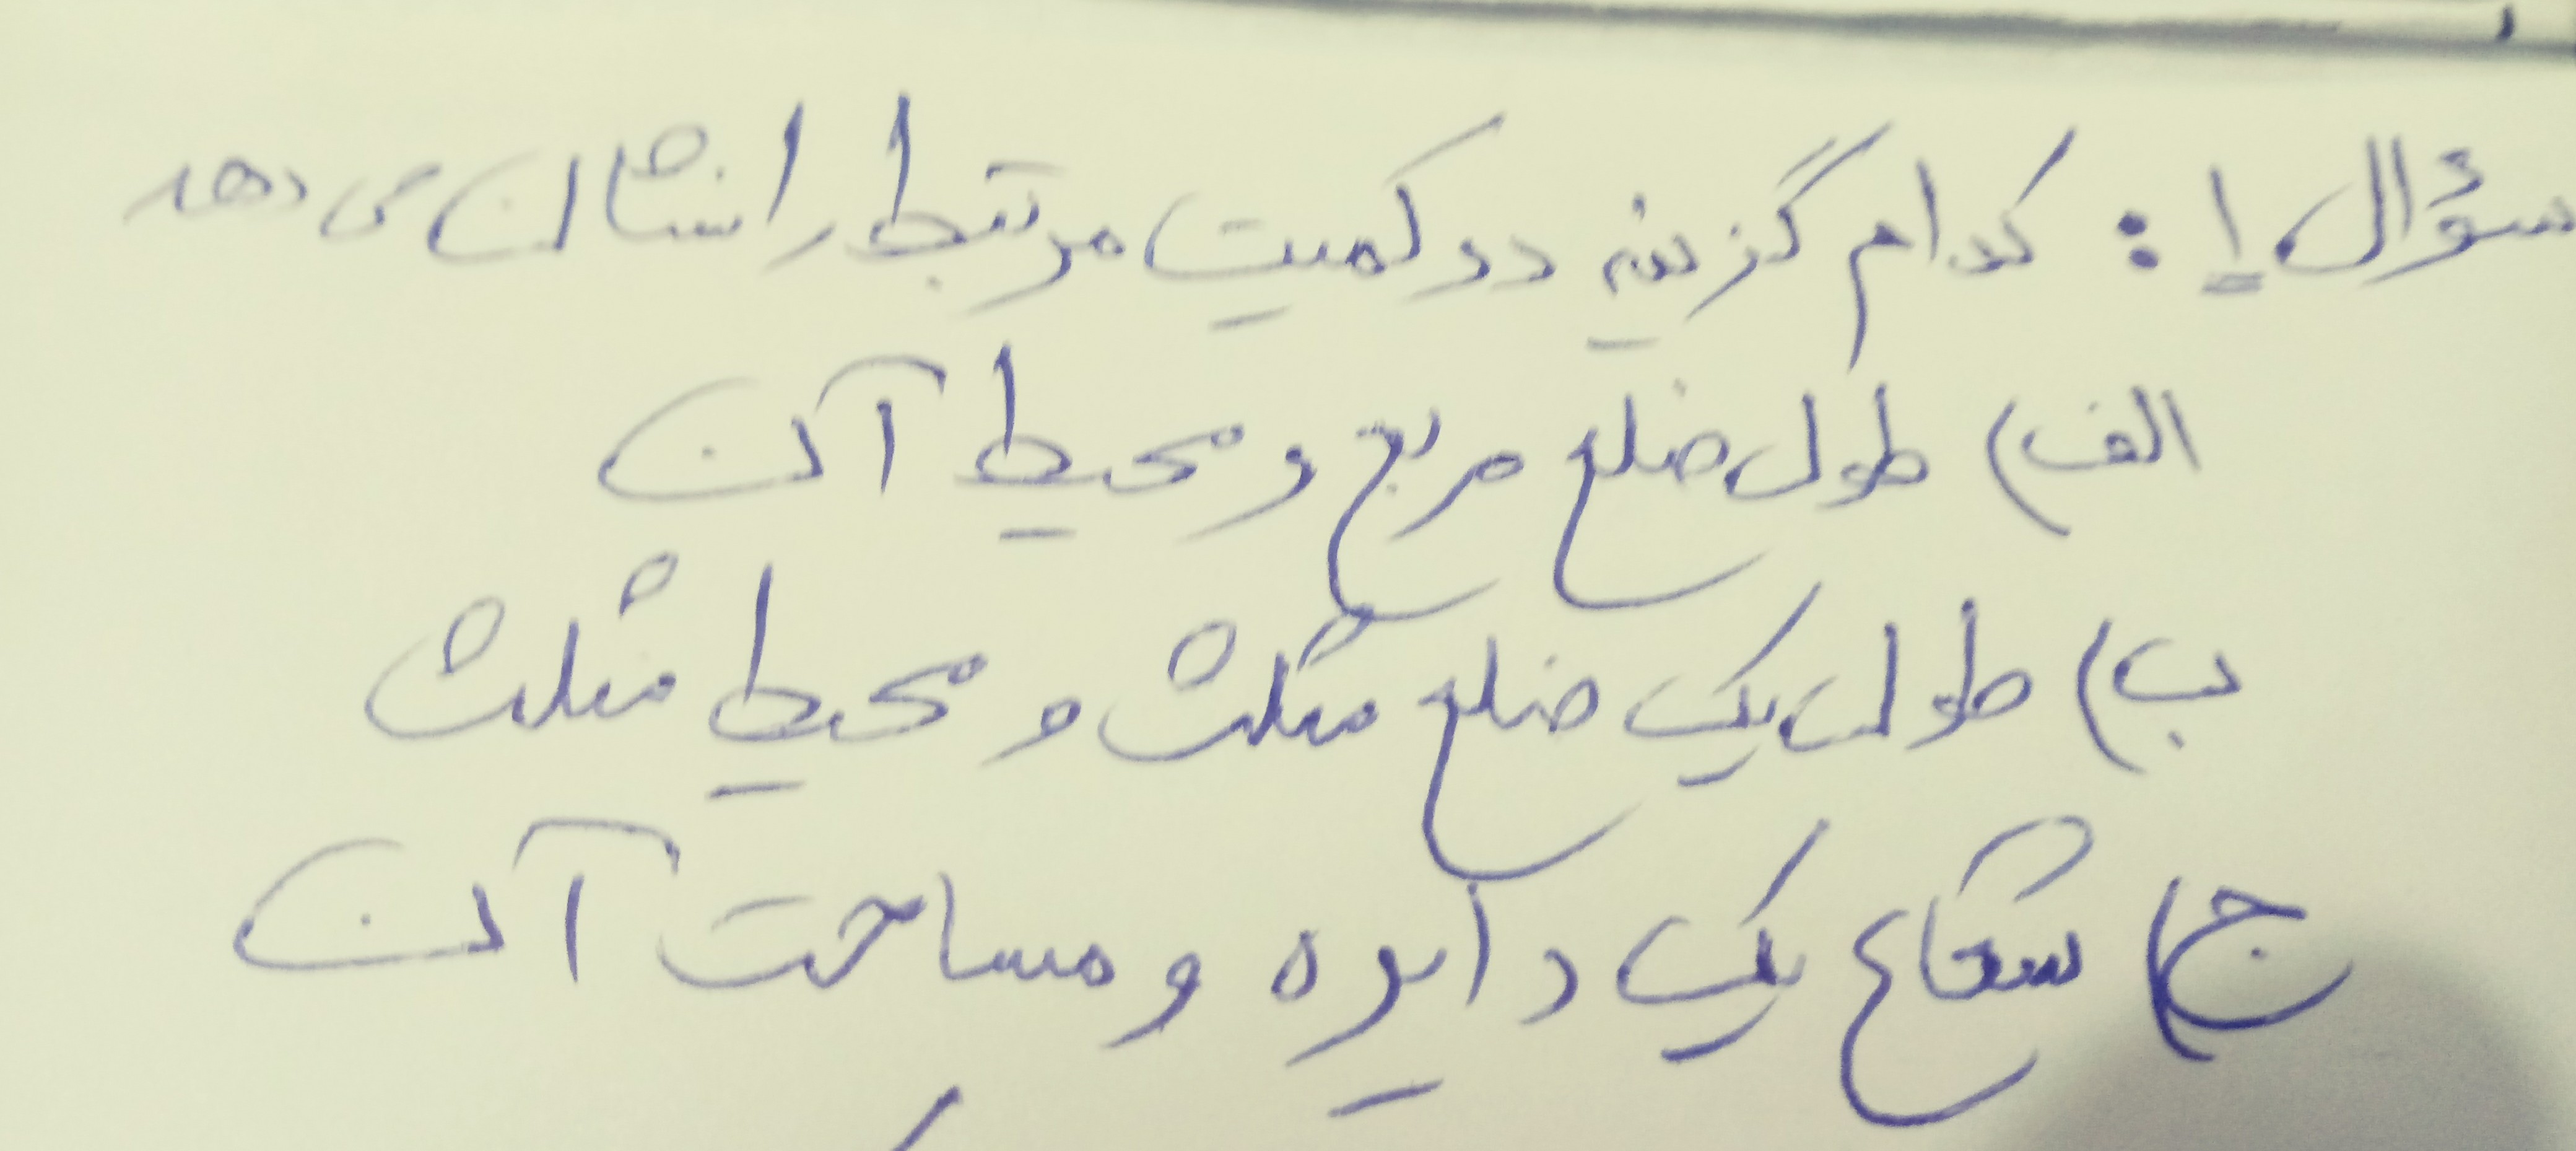 سؤال ۱: کدام گزینه دو کمیت مرتبط را نشان می دهد
الف) طول ضلع مربع و محیط آن
ب) طول یک ضلع مثلث و محیط مثلث
ج) شعاع یک دایره و مساحت آن